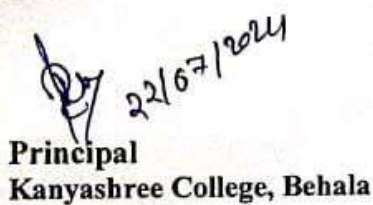 22/07/2024
Principal
Kanyashree College, Behala